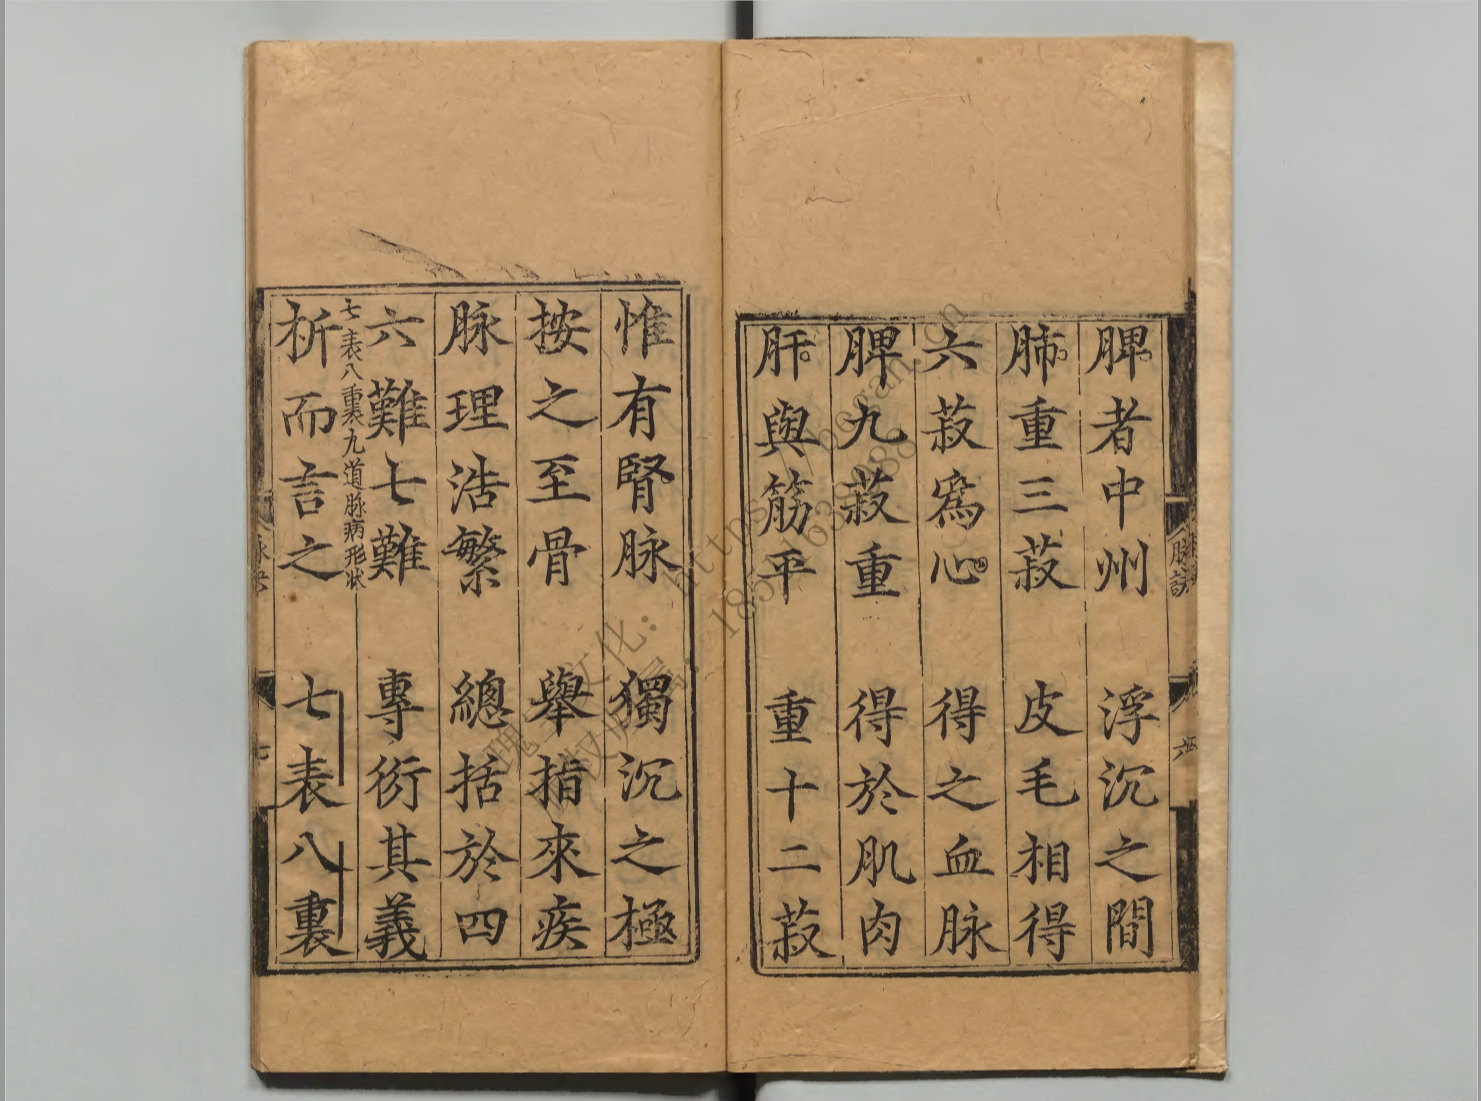 脾者中州　浮沉之間
肺重三菽　皮毛相得
六菽爲心　得之血脉
脾九菽重　得於肌肉
肝與筋平　重十二菽
脉訣
六
惟有腎脉　獨沉之極
按之至骨　舉指來疾
脉理浩繁　總括於四
六難七難　專衍其義
七表八裏九道脉病形状
析而言之　七表八裏
七